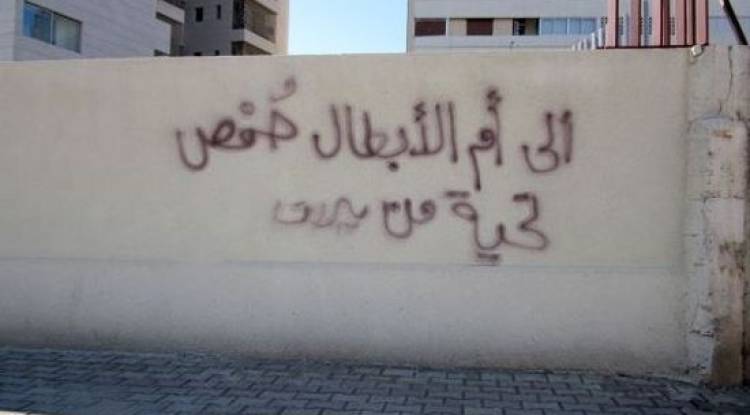 ألى أم الأبطال حُمْص
تحية من بيروت